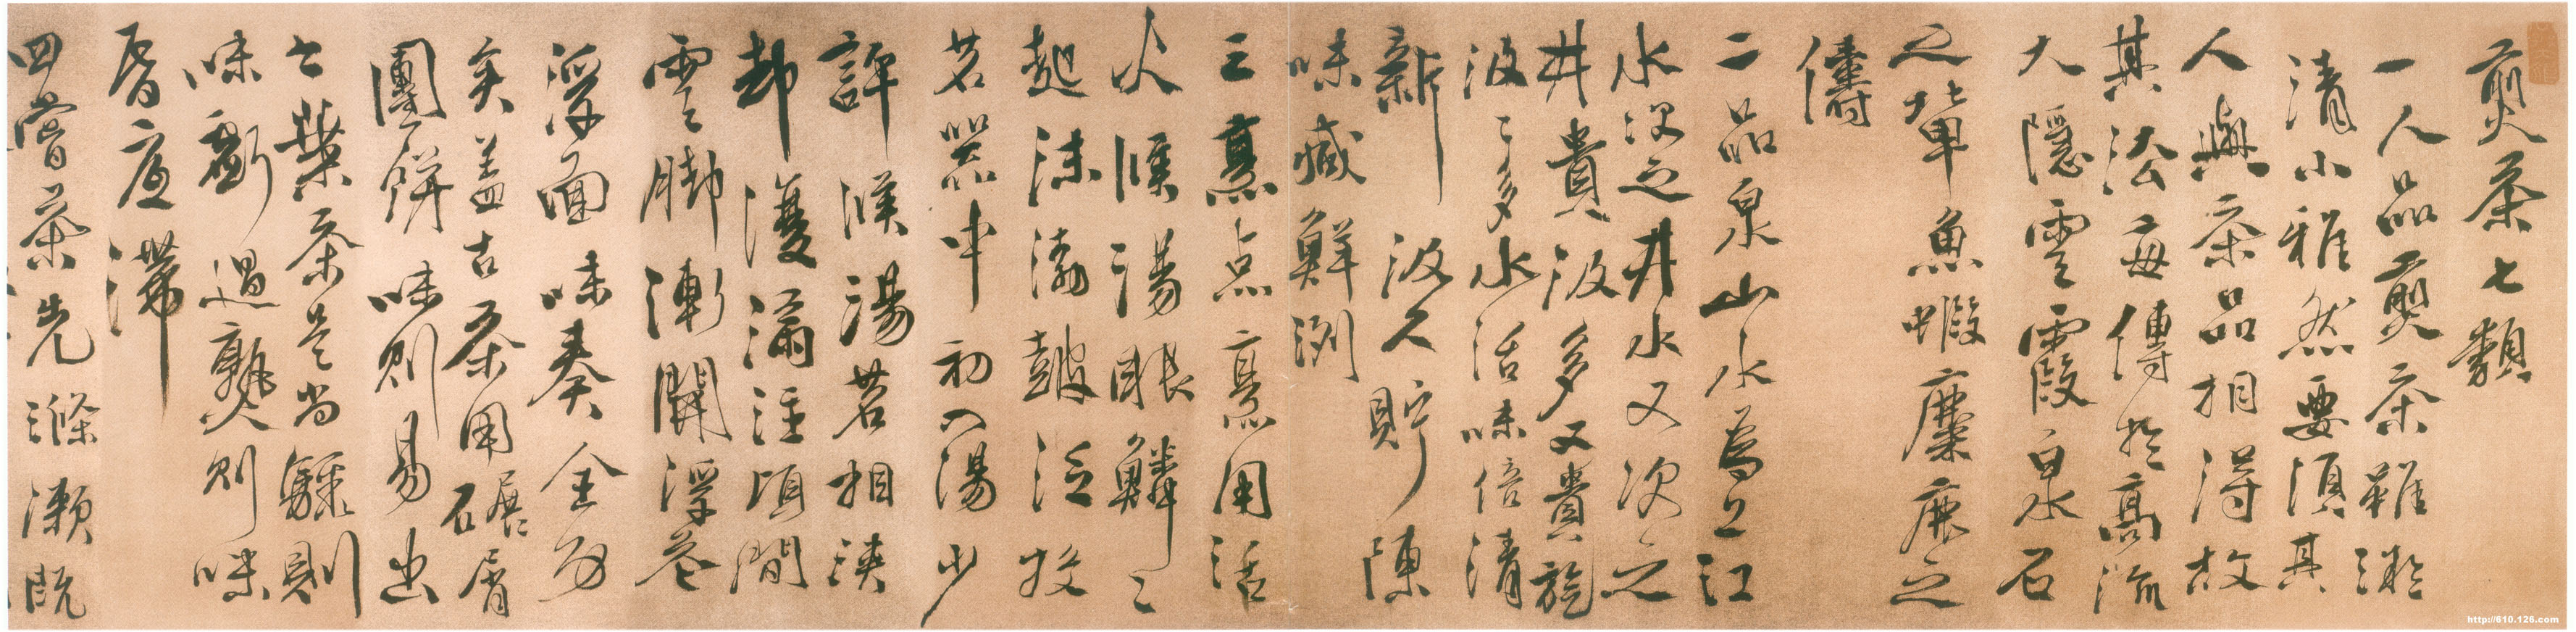 煎茶七類
一人品煎茶雖凝
清小雅然要須其
人與茶品相得故
其法每傳於高流
大隱雲霞泉石
之輩魚蝦麋鹿之
儔
二品泉山水為上江
水次之井水又次之
井貴汲多又貴旋
汲汲多水活味倍清
新汲久貯陳
味減鮮冽
三烹点烹用活
火候湯眼鱗鱗
起沫渤鼓泛投
茗器中初入湯少
許候湯茗相浹
却復滿注頃間
雲脚漸開浮花
浮面味奏全功
矣盖古茶用碾屑
團餅味則易出
之葉茶是尚驟則
味虧過熟則味
昏底滯
四嘗茶先滌漱既
http://610.126.com